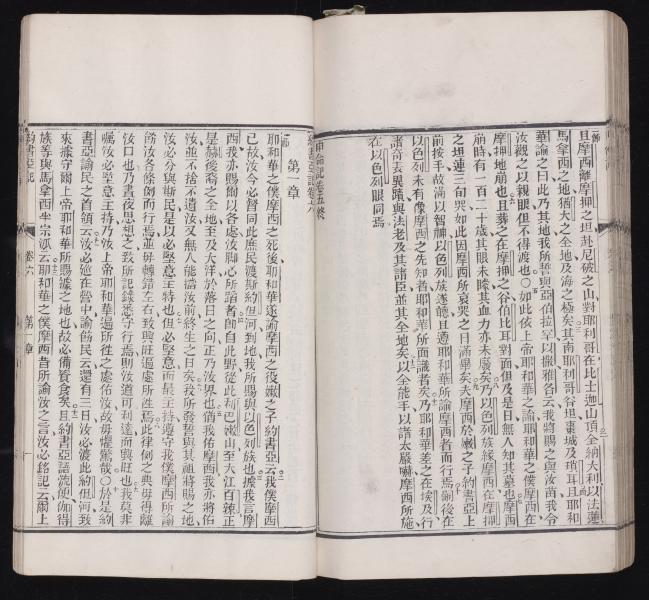 且摩西離摩押之坦赴尼破之山對耶利哥在比士迦山頂全納大利以法蓮
馬拿西之地猶大之全地及海之極矣其南耶利哥谷坦棗城及瑣耳且耶和
華諭之曰此乃其地我所誓與亞伯拉罕以撒雅各云我將賜之與汝苗我令
汝觀之以親眼但不得渡也〇如此依上帝耶和華之諭耶和華之僕摩西在
摩押地崩也且葬之在摩押之谷伯比耳對面但及是日無人知其墓也摩西
崩時有一百二十歲其眼未矇其血力亦未廢矣乃以色列族緣摩西在摩押
之坦連三旬哭如此因摩西所哀哭之日滿畢矣夫摩西於嫩之子約書亞上
前按手故滿以智神以色列族遂聽且遵耶和華所諭摩西者而行焉嗣後在
以色列未有像摩西之先知者耶和華所面識者矣乃耶和華差之在埃及行
諸奇表異蹟與法老及其諸臣並其全地矣以全能手以諸太嚴嚇摩西所施
在以色列眼同焉
申命記卷五終
第一章
耶和華之僕摩西之死後耶和華遂諭摩西之役嫩之子約書亞云我僕摩西
已故汝今必督同此庶民渡斯約但河到地我所賜與以色列族也據我言摩
西我亦賜爾以各處汝腳心所踏者即自此野從此利巴嫩山至大江百辣正
是赫後裔之全地至及大洋於落日之向正乃汝界也猶我佑摩西我亦將佑
汝並不捨不遺汝又無人能當汝前終生之日矣我所發誓與其祖將賜之地
汝必分與斯民是以必堅意主持也但必堅意而最主持遵守我僕摩西所諭
爾汝各條例而行焉並毋轉錯左右致興旺過處所徃焉此律例之典毋得離
汝口也乃晝夜思想之致所記錄悉守行焉則汝道可利達而興旺也我莫非
囑汝必堅意主持乃汝上帝耶和華遍所徃之處佑汝故毋懼驚哉〇於是約
書亞諭民之首領云汝必巡在營中諭飭民云還有三日汝必渡此約但河致
來據守爾上帝耶和華所賜據之地也故必備資食矣且約書亞謡流便伽得
族等與馬拿西半宗派云耶和華之僕摩西旨所諭汝之言汝必銘記云爾上
約書亞記 卷六 第一章